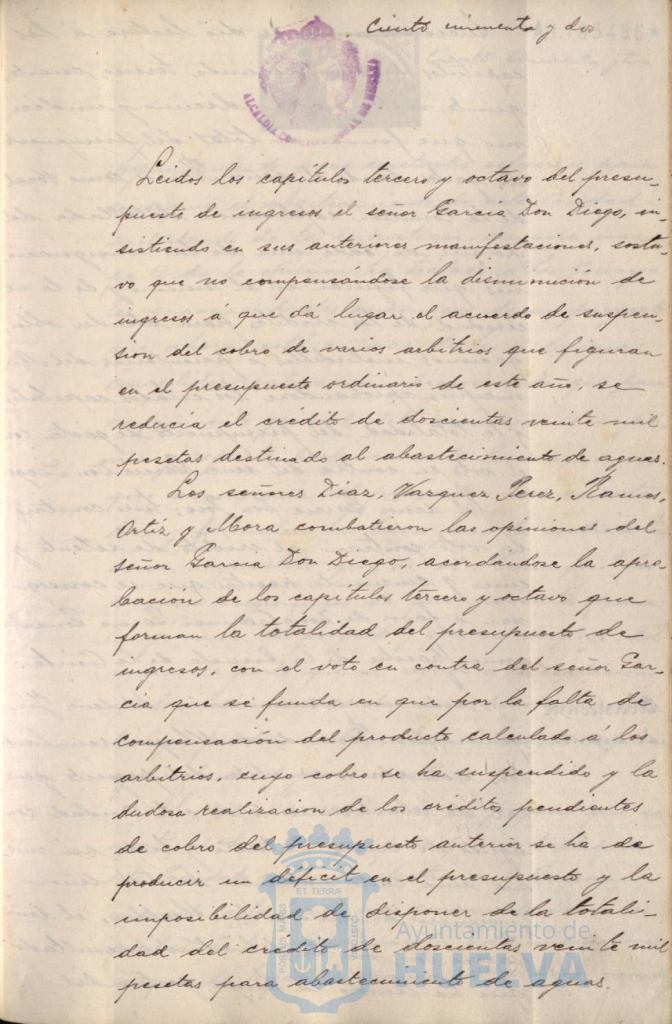 Ciento cincuenta y dos
ALCALDIA CONSTITUCIONAL DE HUELVA
Leidos los capítulos tercero y octavo del presu-
puesto de ingresos el señor Garcia Don Diego, in-
sistiendo en sus anteriores manifestaciones, sostu-
vo que no compensándose la disminución de
ingresos á que dá lugar el acuerdo de suspen-
sion del cobro de varios arbitrios que figuran
en el presupuesto ordinario de este año, se
reducia el crédito de doscientas veinte mil
pesetas destinado al abastecimiento de aguas.
Los señores Diaz, Vazquez Perez, Ramos,
Ortíz y Mora combatieron las opiniones del
señor Garcia Don Diego, acordándose la apro-
bación de los capítulos tercero y octavo que
forman la totalidad del presupuesto de
ingresos, con el voto en contra del señor Gar-
cia que se funda en que por la falta de
compensación del producto calculado á los
arbitrios, cuyo cobro se ha suspendido y la
dudosa realizacion de los créditos pendientes
de cobro del presupuesto anterior se ha de
producir un déficit en el presupuesto y la
imposibilidad de disponer de la totali-
dad del crédito de doscientas veinte mil
pesetas para abastecimiento de aguas.
PORTUS MARIS ET TERRÆ CUSTODIA
Ayuntamiento de
HUELVA